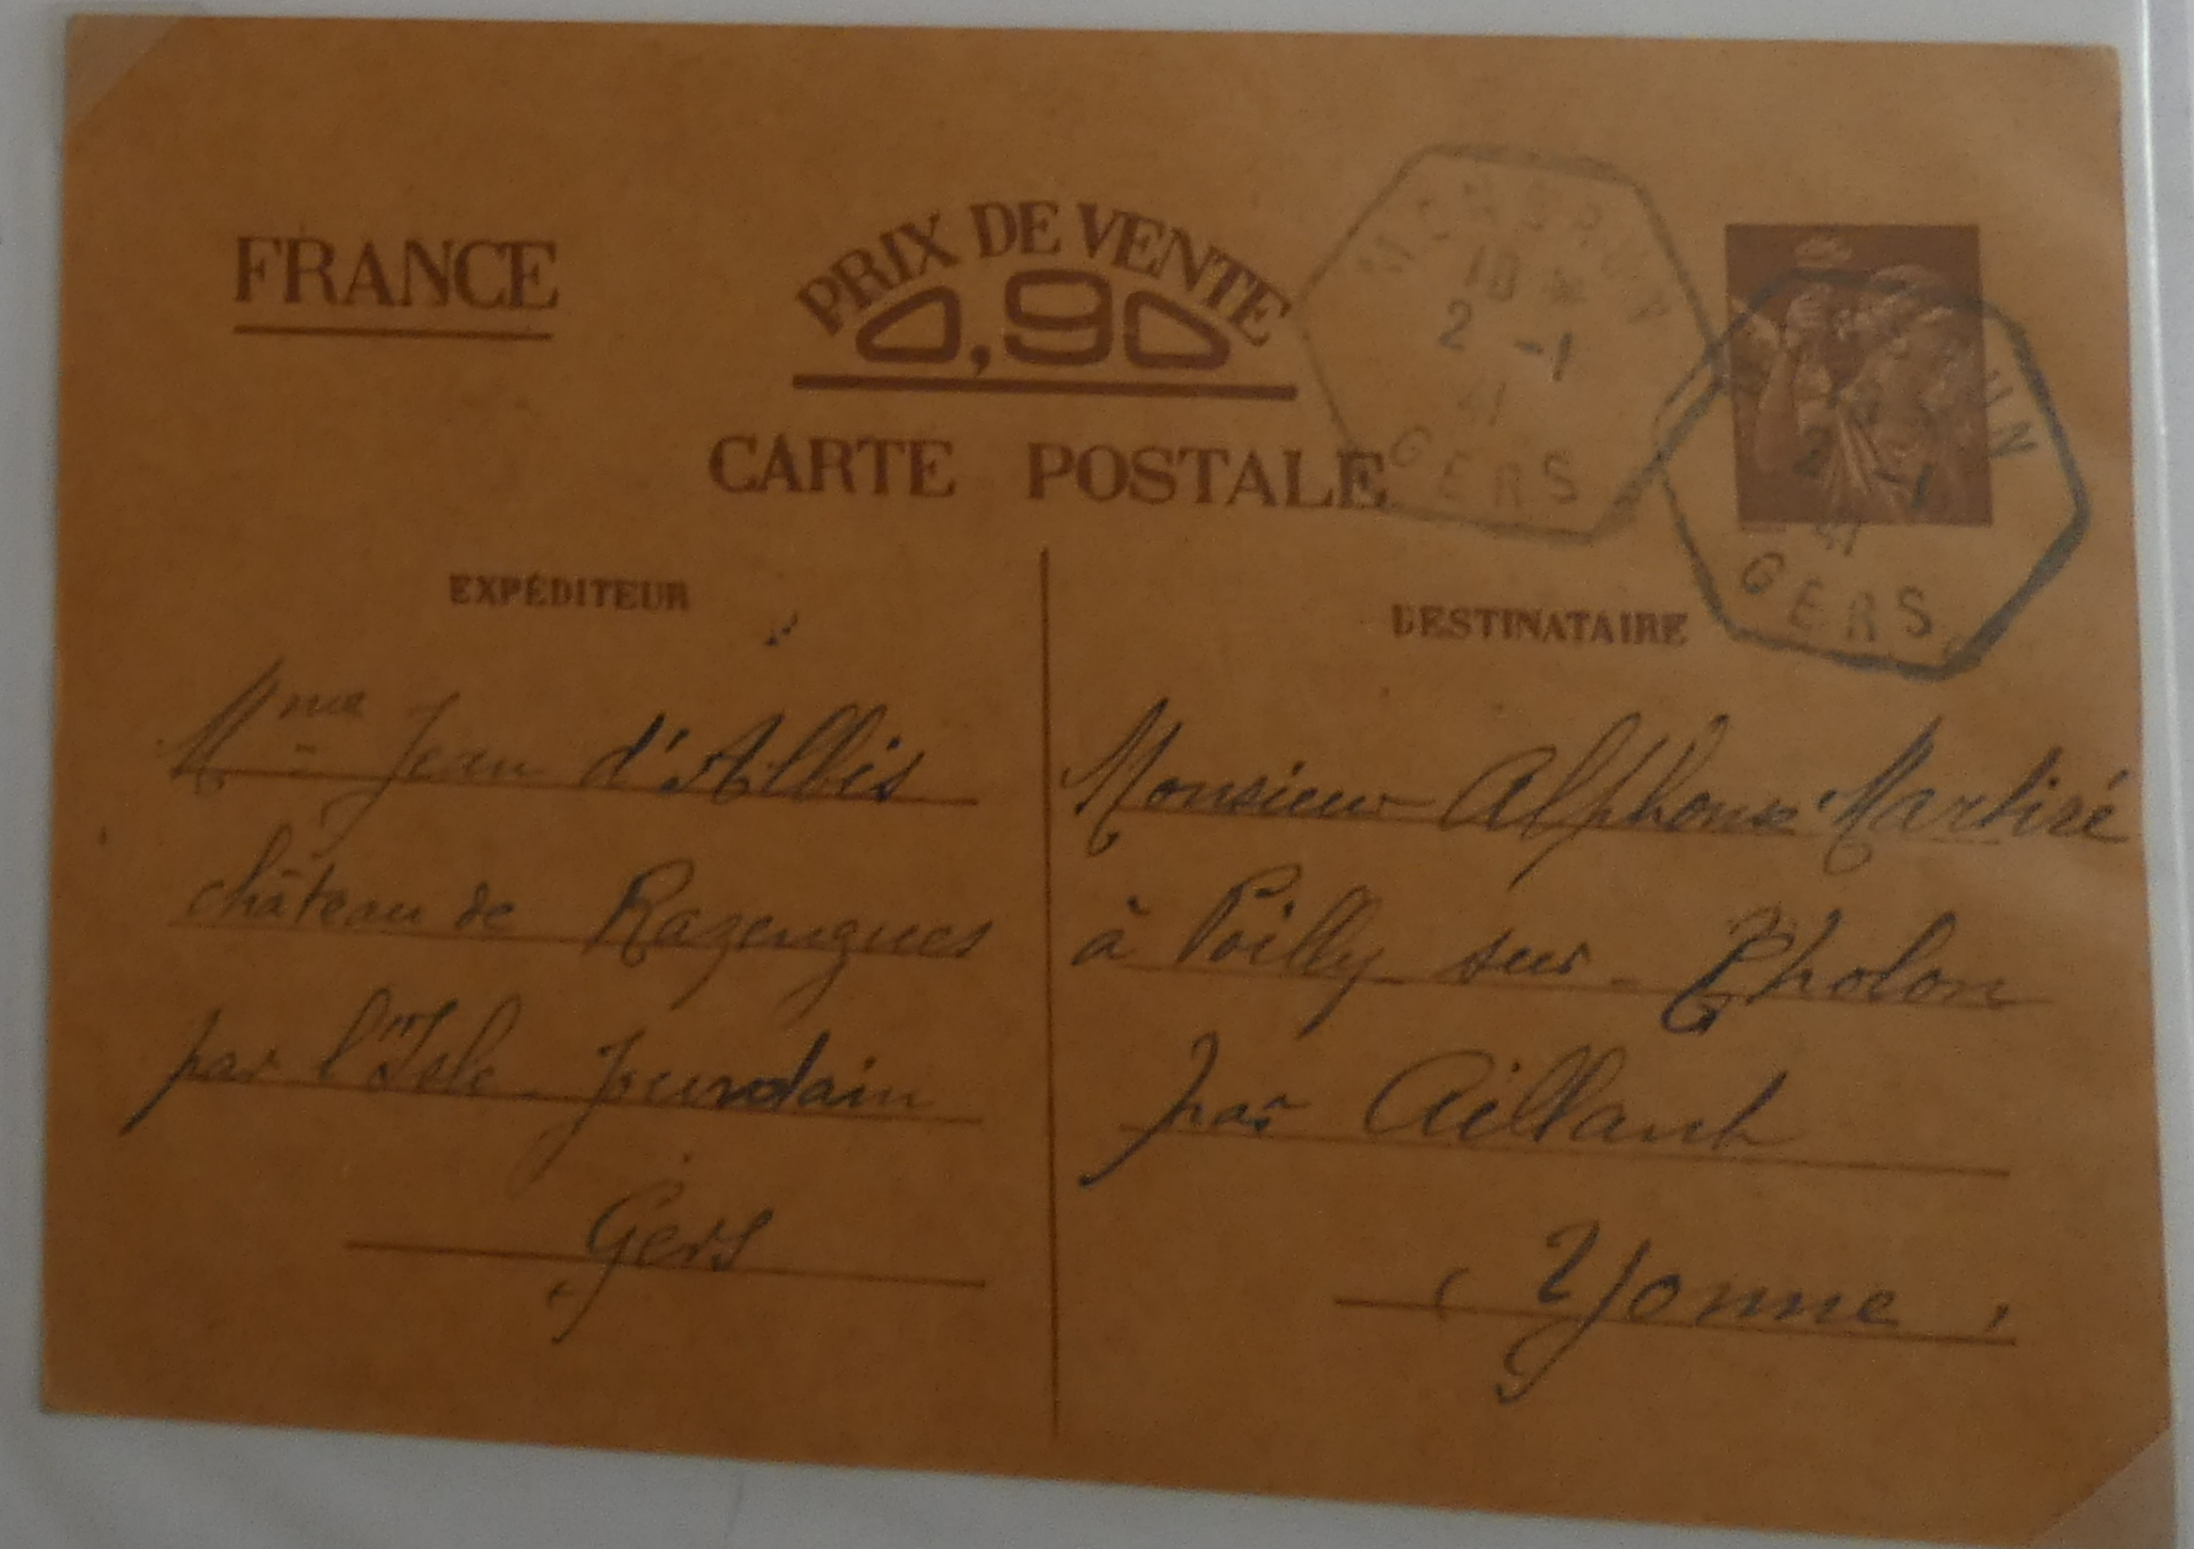 FRANCE
PRIX DE VENTE
0,90
CARTE POSTALE
MONBRUN
10
2 -1
41
GERS
2 -1
41
GERS
EXPÉDITEUR
Mme Jean d'Albis
château de Razengues
par l'Isle-Jourdain
Gers
DESTINATAIRE
Monsieur Alphonse Martiré
à Poilly-sur-Tholon
par Aillant
(Yonne)